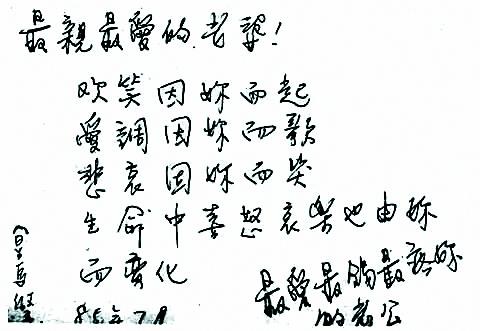 最親最愛的老婆!
欢笑因妳而起
愛調因妳而歌
悲哀因妳而哭
生命中喜怒哀樂也由妳
而變化
最愛最
的老公
85年7月